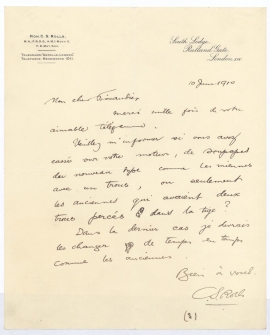 HON. C. S. ROLLS.
South Lodge,
Rutland Gate,
London, S.W.
10 June 1910
Mon cher
merci mille fois de votre
aimable télégramme.
Veuillez m'informer si vous avez
essayé sur votre moteur, de soupapes
du nouveau type comme les miennes
avec un trou, ou seulement
les anciennes qui avaient deux
trous percés dans la tige?
Dans le dernier cas je devrais
les changer de temps en temps
comme les anciennes.
Bien à vous
C S Rolls
(8)